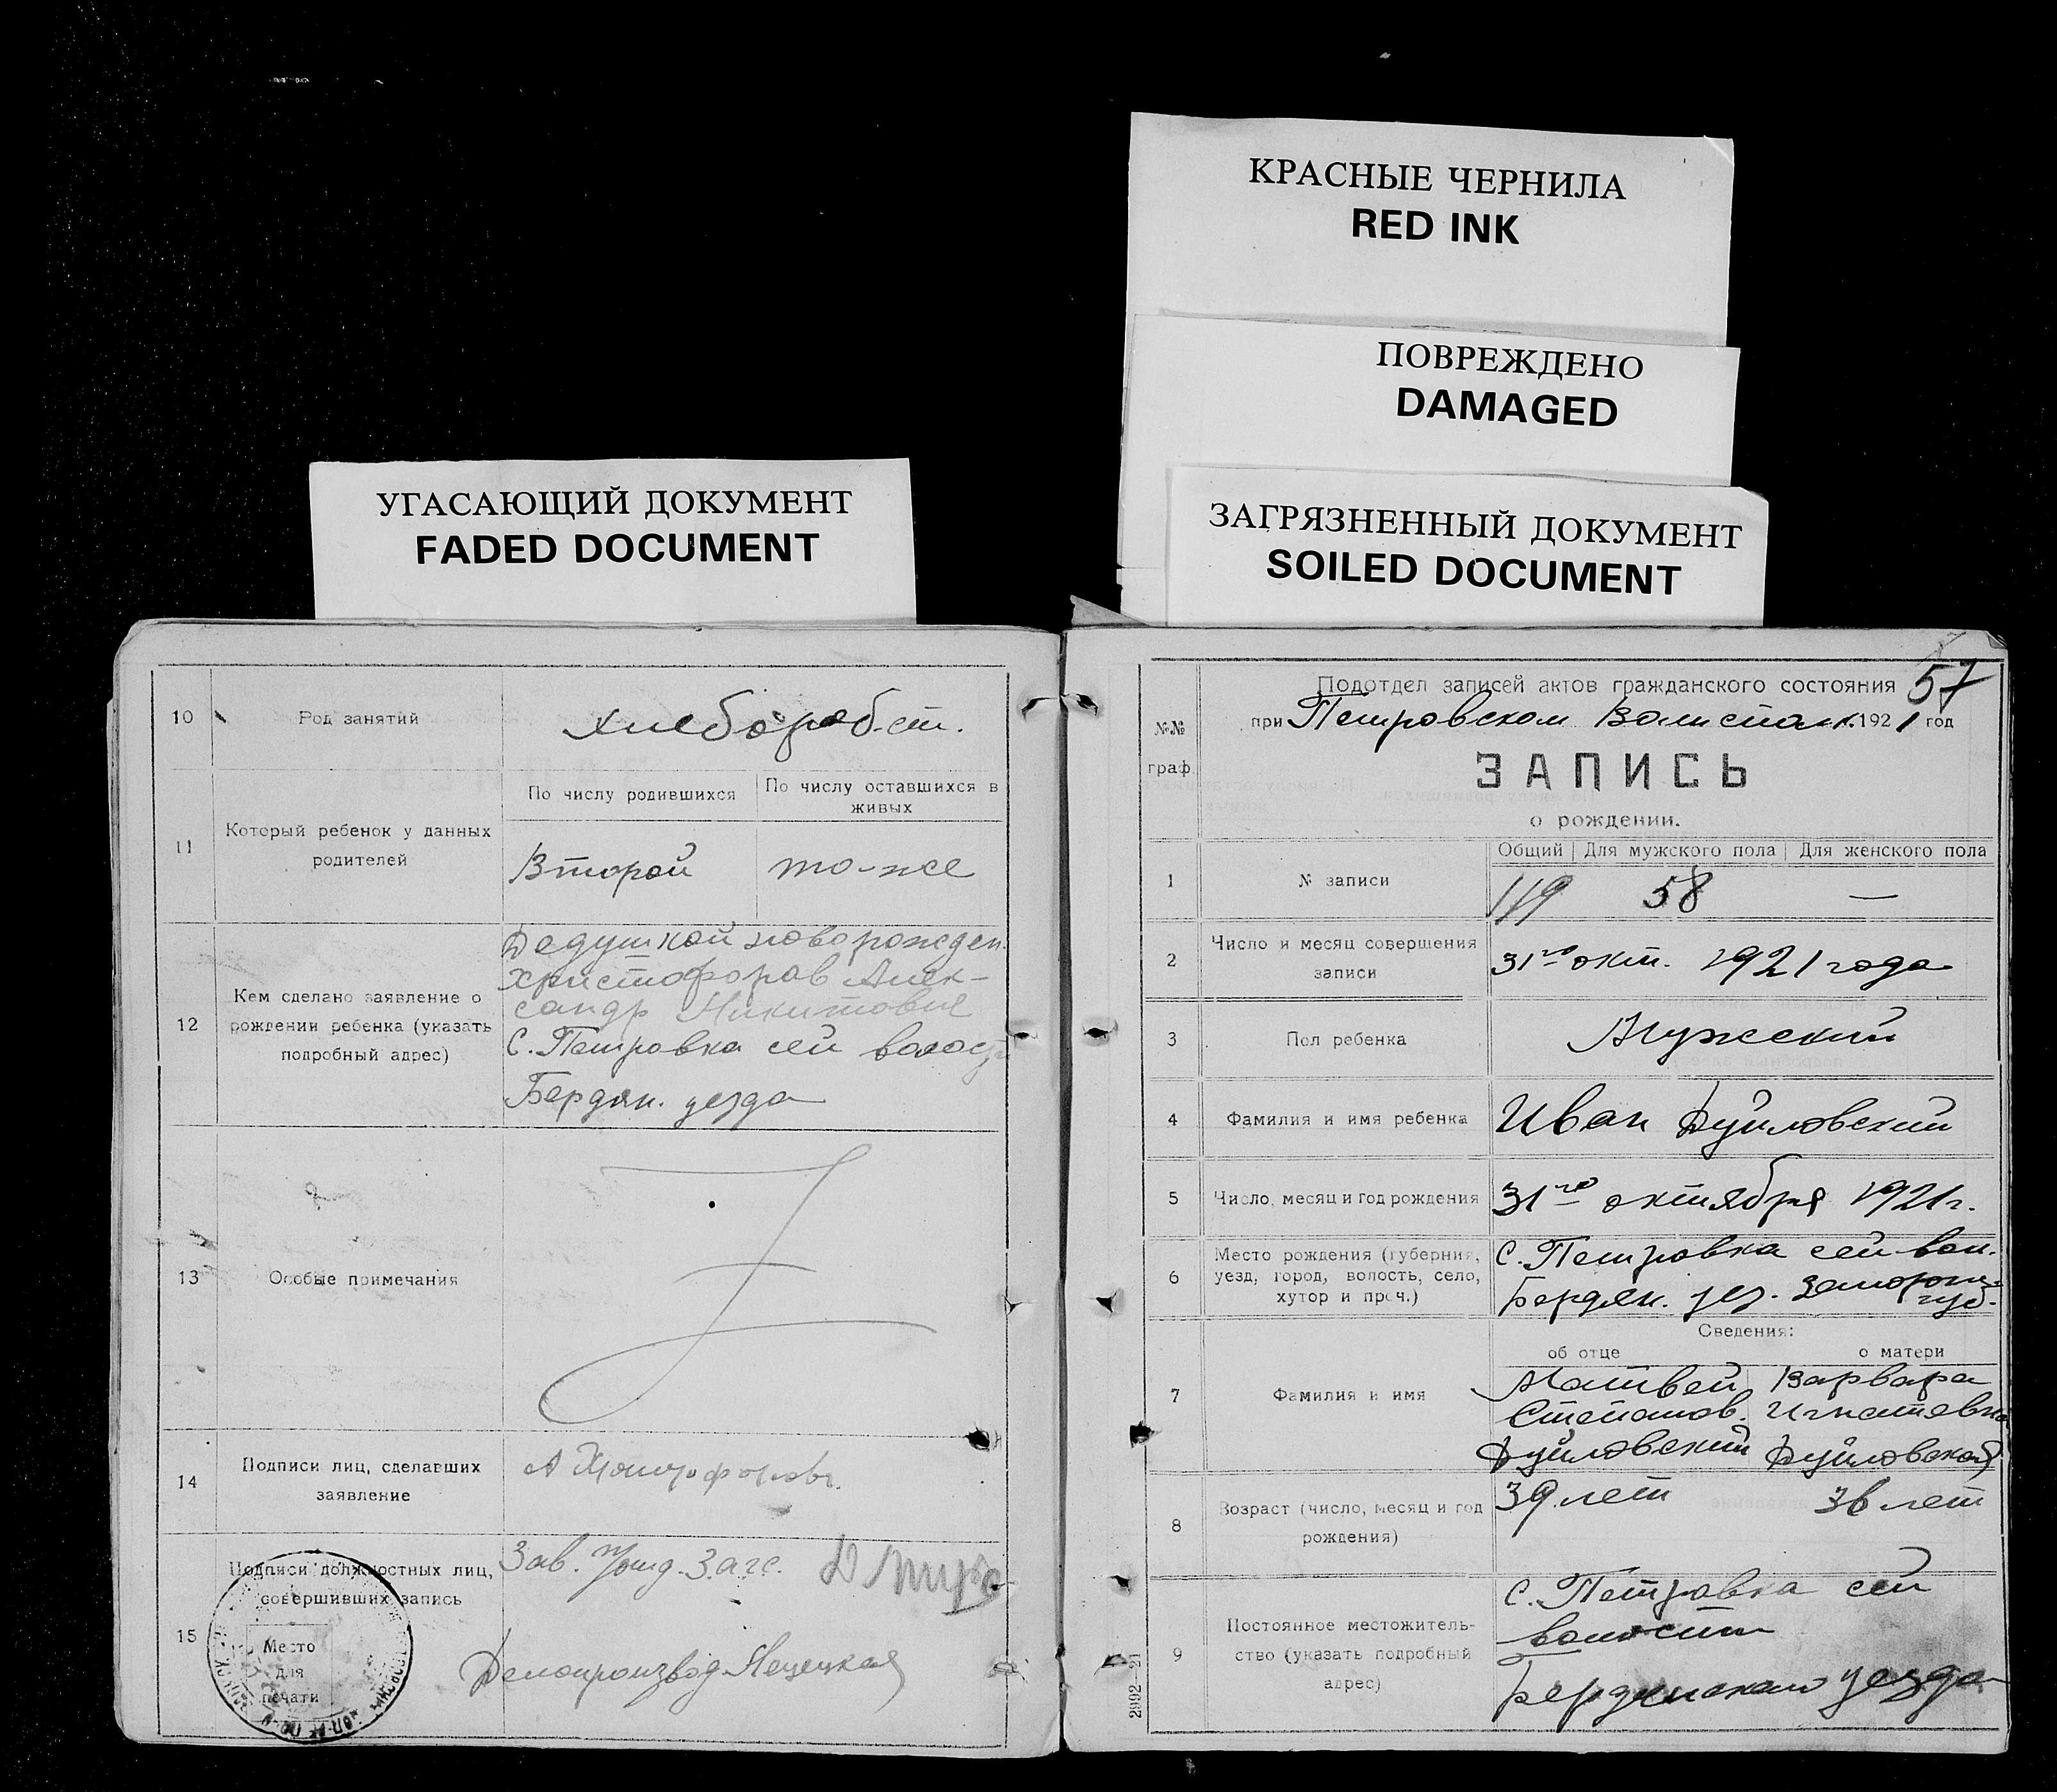 КРАСНЫЕ ЧЕРНИЛА
RED INK
ПОВРЕЖДЕНО
DAMAGED
УГАСАЮЩИЙ ДОКУМЕНТ
FADED DOCUMENT
ЗАГРЯЗНЕННЫЙ ДОКУМЕНТ
SOILED DOCUMENT
10 Род занятий хлебороб.ст.
11 Который ребенок у данных родителей
По числу родившихся
По числу оставшихся в живых
Второй то-же
12 Кем сделано заявление о
рождении ребенка (указать
подробный адрес)
Дедушкой новорожден.
Христофоров Алек-
сандр Никитович
С. Петровка сей волости
Бердян. уезда
13 Особые примечания
14 Подписи лиц, сделавших
заявление
А Христофоровъ
15 Подписи должностных лиц,
совершивших запись
Место
для
печати
Зав. Загс.
Делопроизвод.
57
Подотдел записей актов гражданского состояния
при Петровском Волисполк. 1921 год
№№
граф.
ЗАПИСЬ
о рождении.
Общий Для мужского пола Для женского пола
1 № записи 119 58 —
2 Число и месяц совершения
записи
31го окт. 1921 года
3 Пол ребенка Мужский
4 Фамилия и имя ребенка Иван Дуйловский
5 Число, месяц и год рождения 31го октября 1921 г.
6 Место рождения (губерния,
уезд, город, волость, село,
хутор и проч.)
С. Петровка сей вол.
Бердян. уез. Запорож.
губ.
Сведения:
об отце о матери
7 Фамилия и имя
Матвей Варвара
Степанов. Игнатевна
Дуйловский Дуйловская
8 Возраст (число, месяц и год
рождения)
39 лет 36 лет
9 Постоянное местожитель-
ство (указать подробный
адрес)
С. Петровка сей
волости
Бердянскаго уезда
2992—21